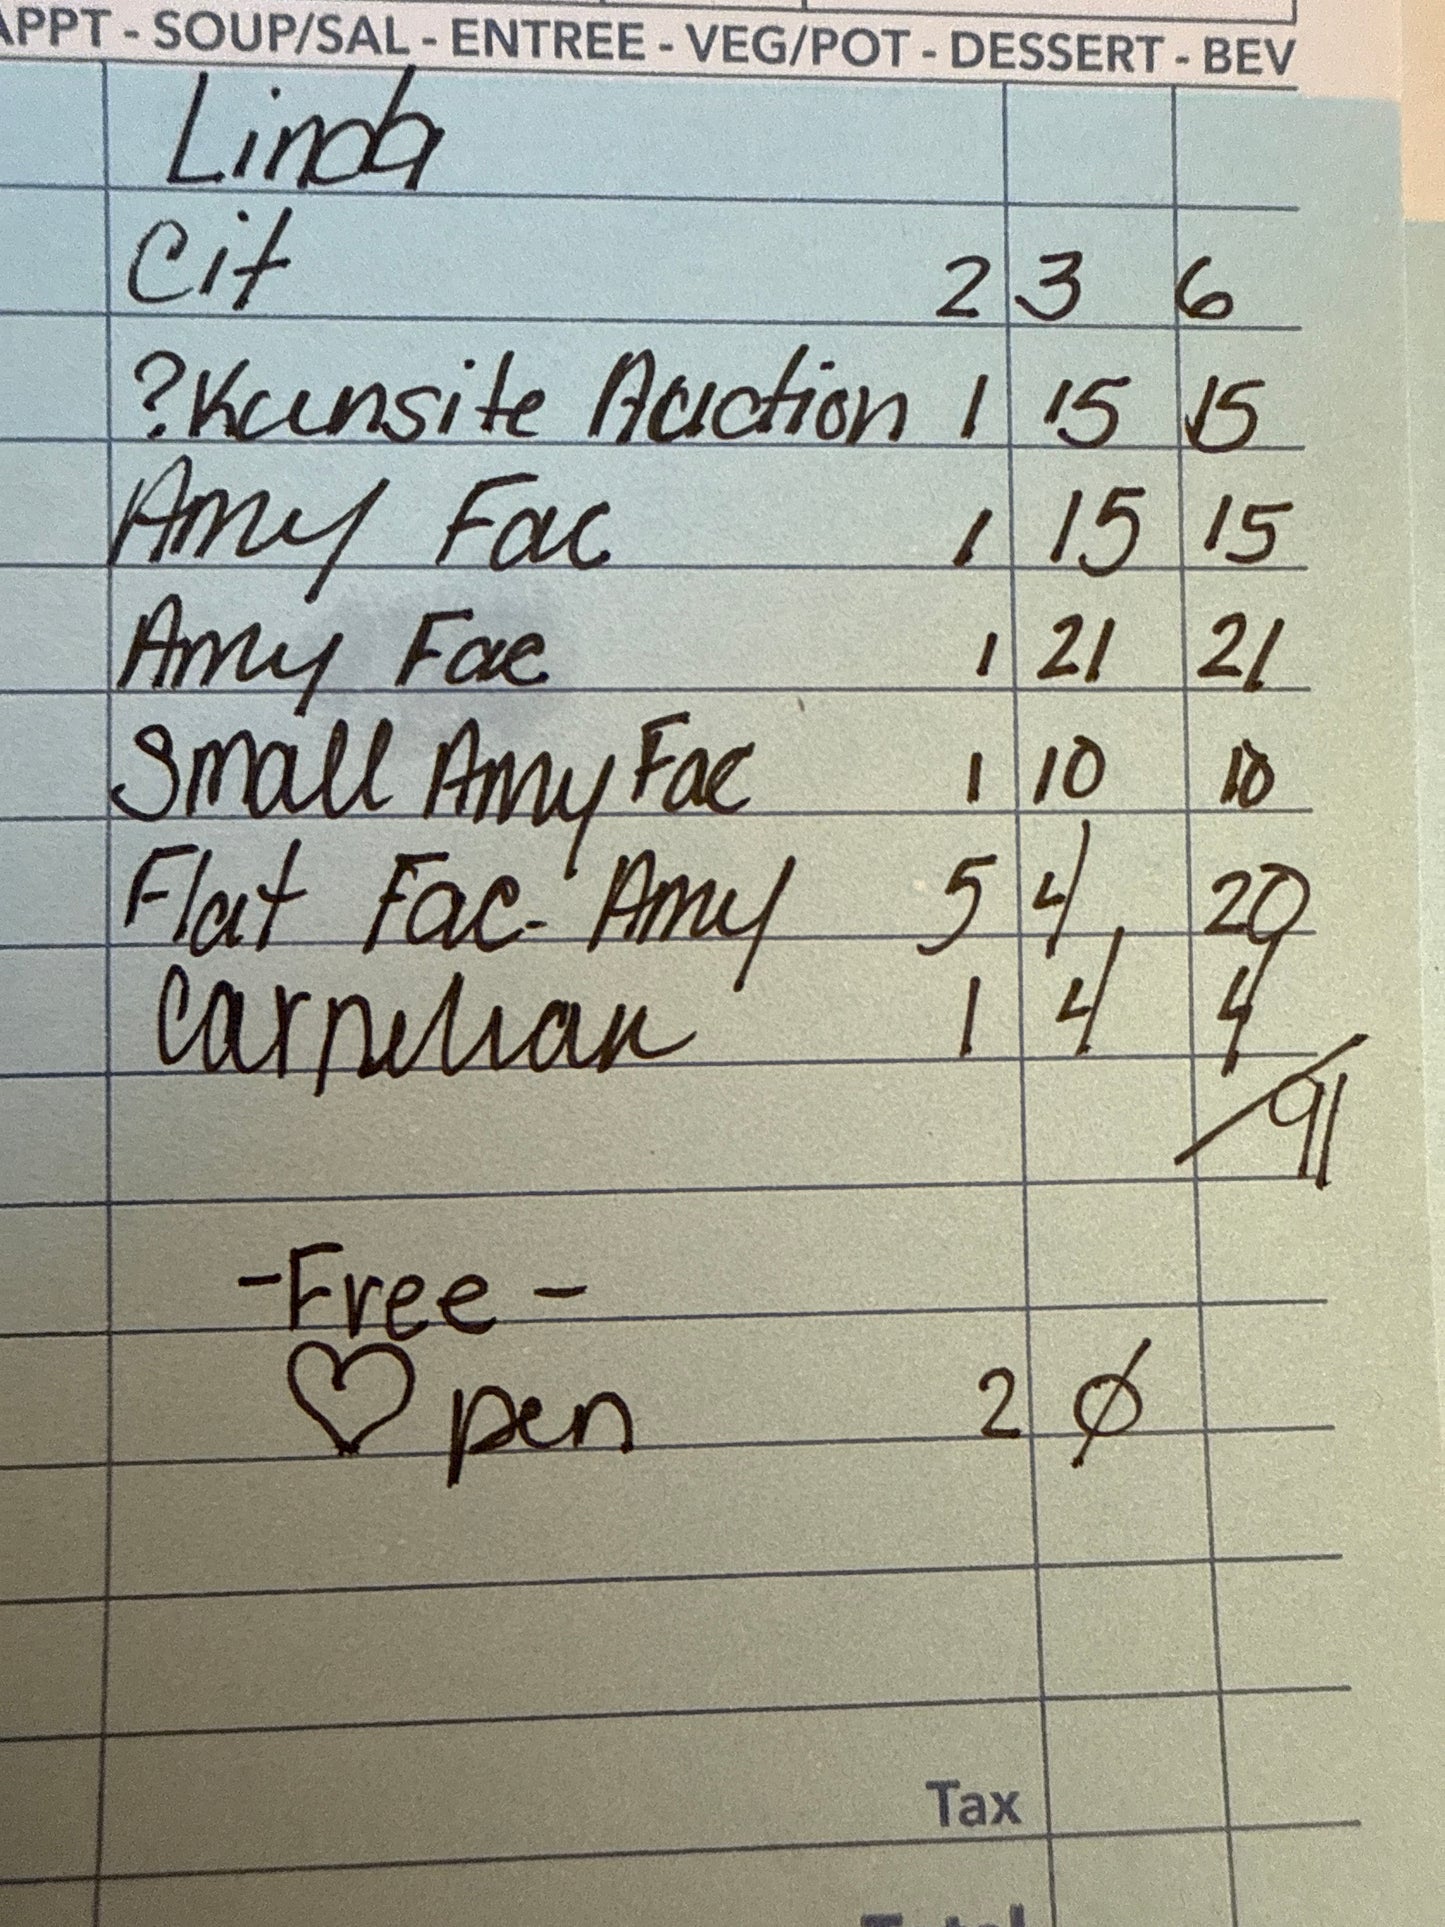 APPT - SOUP/SAL - ENTREE - VEG/POT - DESSERT - BEV
Linda
Cit 2 3 6
?Kunsite Auction 1 15 15
Amy Fac 1 15 15
Amy Fac 1 21 21
Small Amy Fac 1 10 10
Flat Fac- Amy 5 4 20
Carnelian 1 4 4
91
-Free-
♡ pen 2 Ø
Tax
Total